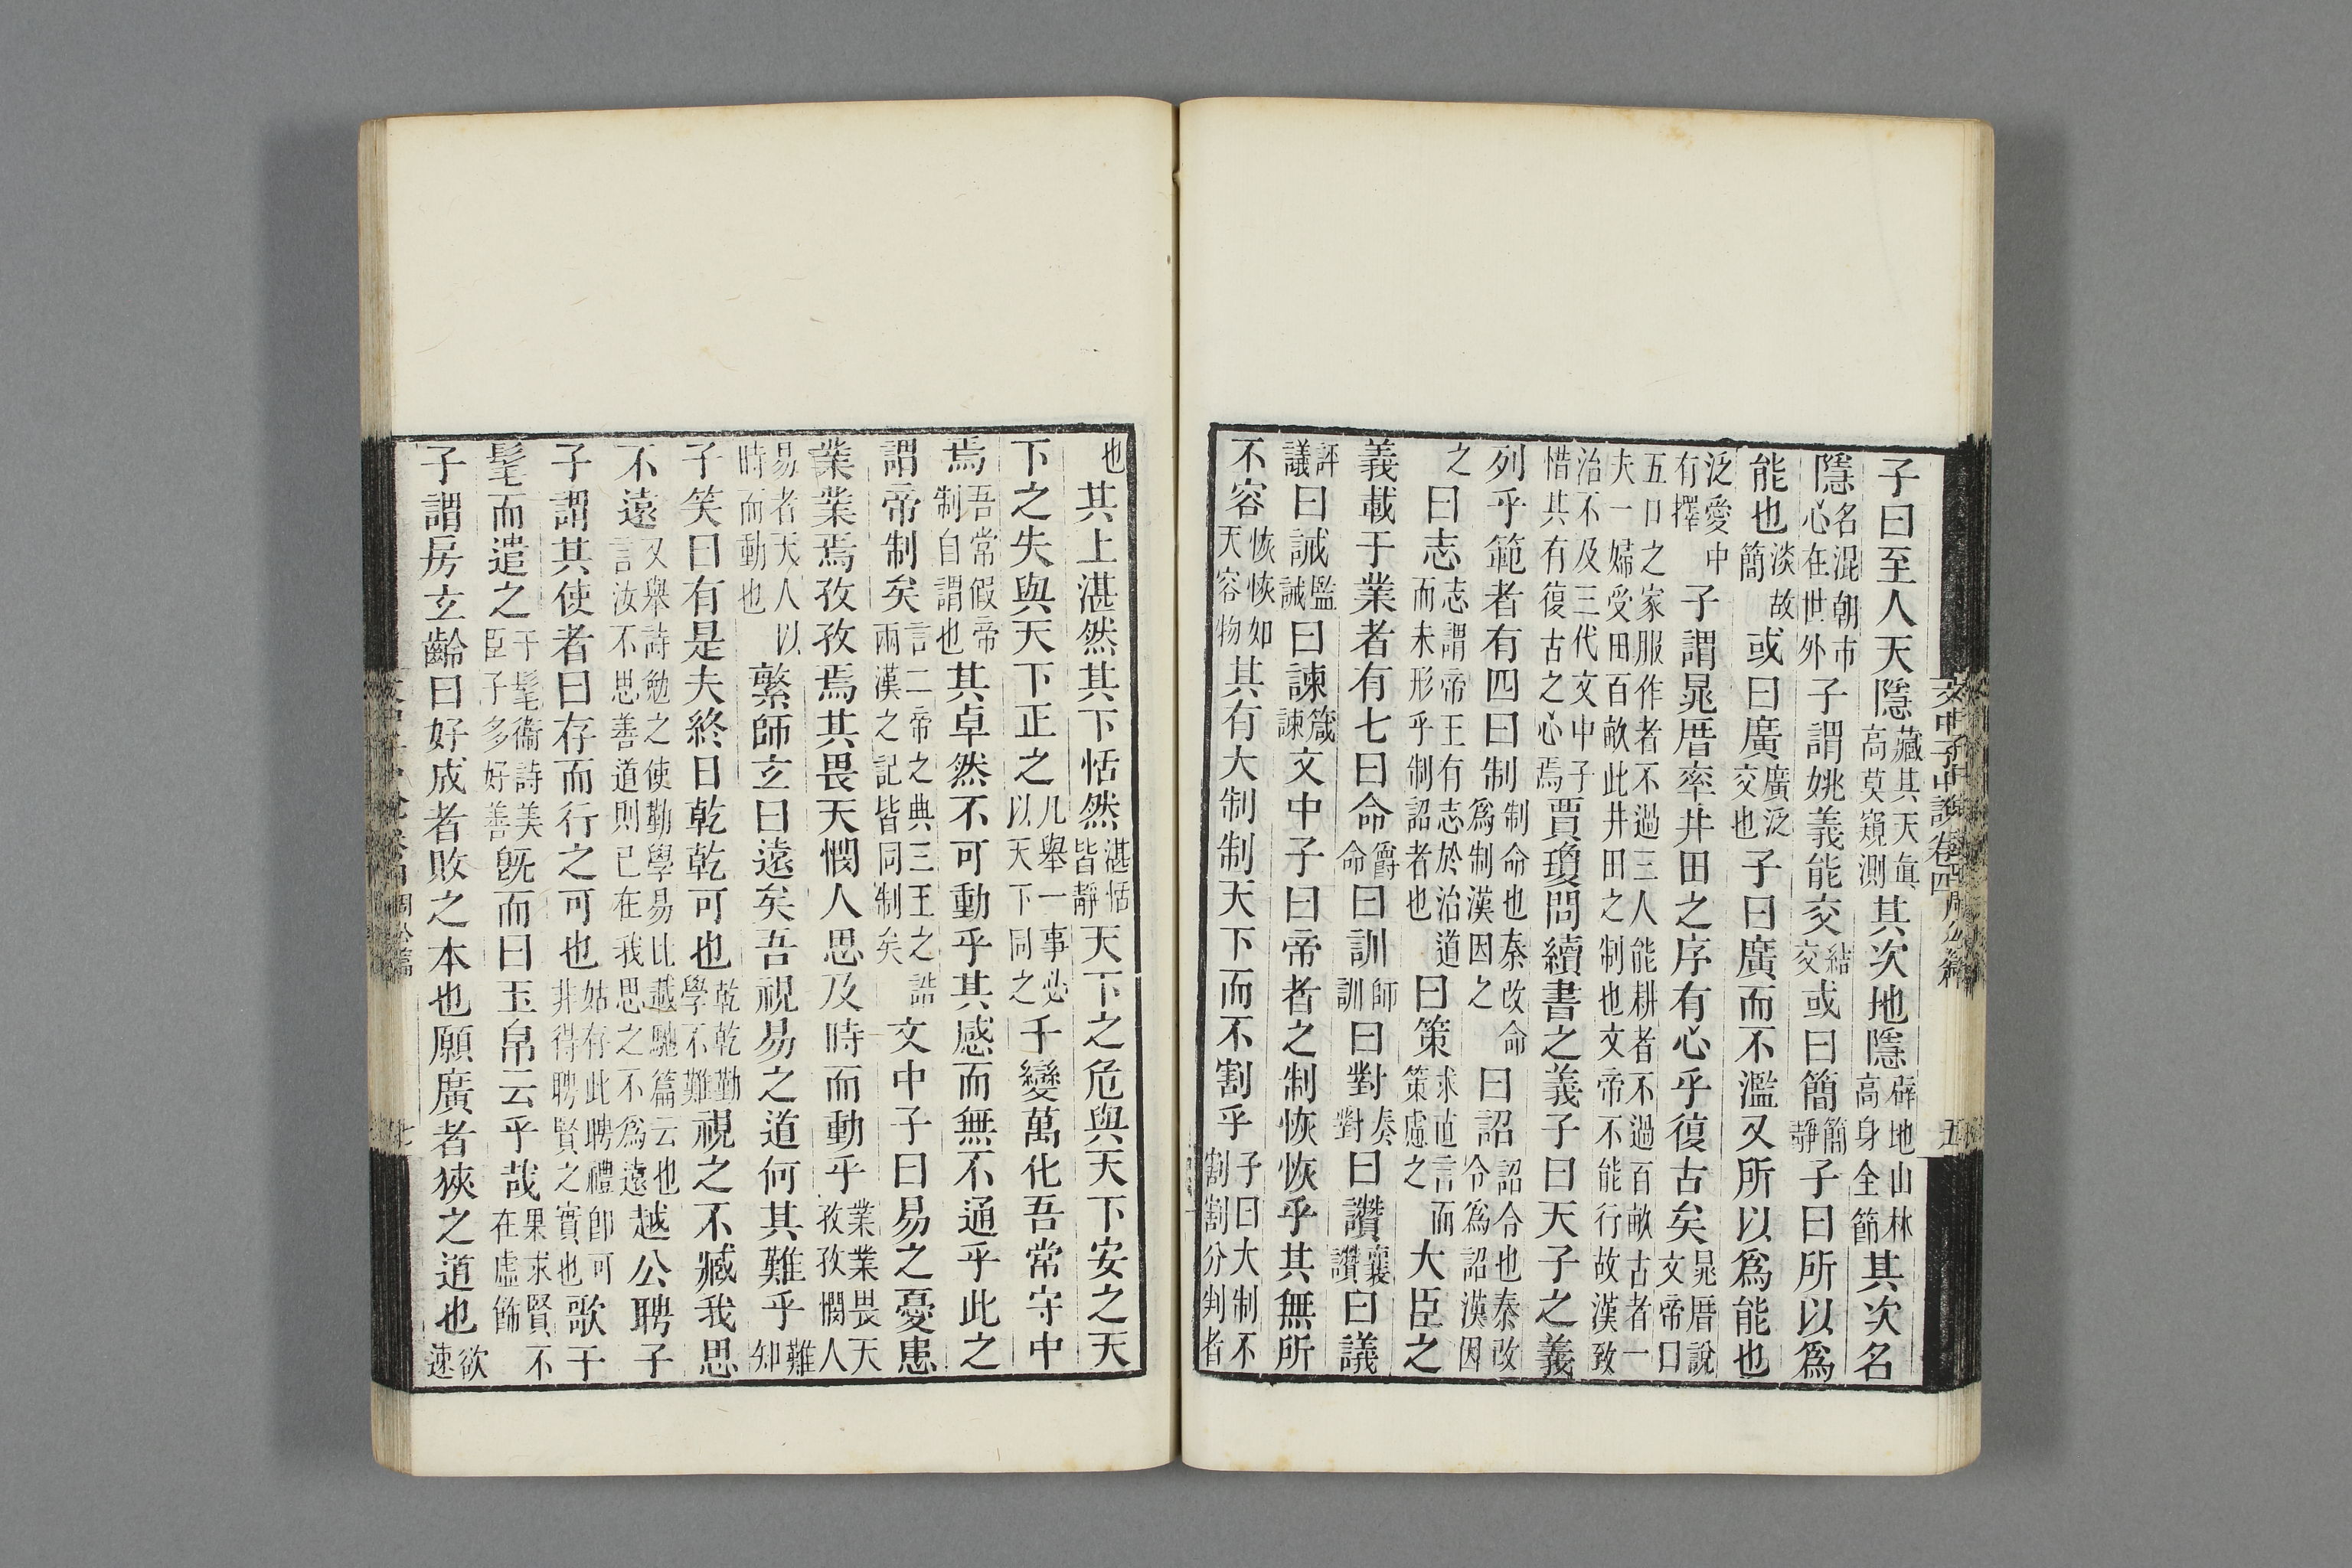 文中子中說卷四 周公篇 五
子曰至人天隱藏其天眞高莫窺測其次地隱辟地山林高身全節其次名
隱名混朝市心在世外子謂姚義能交結交或曰簡簡靜子曰所以爲
能也淡故簡或曰廣廣泛交也子曰廣而不濫又所以爲能也
泛愛中有擇子謂晁厝率井田之序有心乎復古矣晁厝說文帝曰
五口之家服作者不過三人能耕者不過百畝古者一夫一婦受田百畝此井田之制也文帝不能行故漢致
治不及三代文中子惜其有復古之心焉賈瓊問續書之義子曰天子之義
列乎範者有四曰制制命也秦改命爲制漢因之曰詔詔令也秦改令爲詔漢因
之曰志志謂帝王有志於治道而未形乎制詔者也曰策求直言而策慮之大臣之
義載于業者有七曰命爵命曰訓師訓曰對奏對曰讚襄讚曰議
評議曰誡監誡曰諫箴諫文中子曰帝者之制恢恢乎其無所
不容恢恢如天容物其有大制制天下而不割乎子曰大制不割割分判者
也其上湛然其下恬然湛恬皆靜天下之危與天下安之天
下之失與天下正之凡舉一事必以天下同之千變萬化吾常守中
焉吾常假帝制自謂也其卓然不可動乎其感而無不通乎此之
謂帝制矣言二帝之典三王之誥兩漢之記皆同制矣文中子曰易之憂患
業業焉孜孜焉其畏天憫人思及時而動乎業業畏天孜孜憫人
易者天人以時而動也繁師玄曰遠矣吾視易之道何其難乎難知
子笑曰有是夫終日乾乾可也乾乾勤學不難視之不臧我思
不遠又舉詩勉之使勤學易比載馳篇云也言汝不思善道則已在我思之不爲遠越公聘子
子謂其使者曰存而行之可也姑有此聘禮卽可非得聘賢之實也歌干
髦而遣之干髦衞詩美臣子多好善旣而曰玉帛云乎哉果求賢不在虛飾
子謂房玄齡曰好成者敗之本也願廣者狹之道也欲速